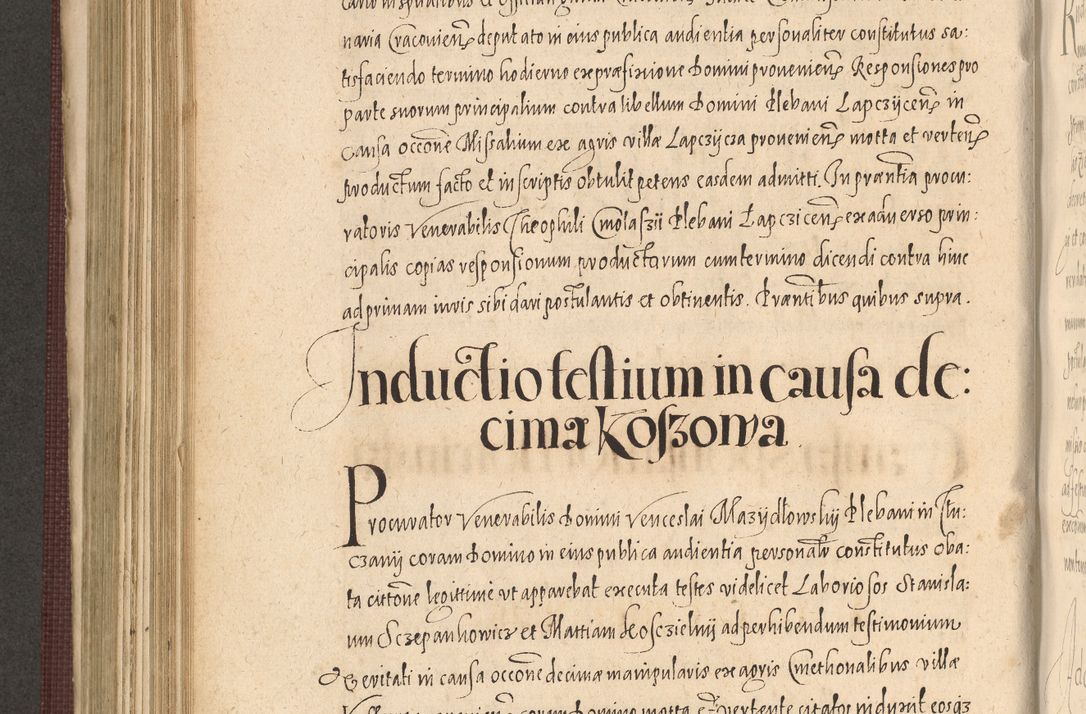 naria Cracovien̄ deputato in eius publica audientia personaliter constitutus sa:
tisfaciendo termino hodierno ex præfixione Domini provenien̄ Responsiones pro
parte suorum principalium contra libellum Domini Plebani Lapczÿcen̄ in
causa occōne Missalium ex agris villæ Lapczÿcza provenien̄ motta et verten̄
productum facto et in scriptis obtulit petens easdem admitti. In præntia procu:
ratoris Venerabilis Theophili Cmolaszii Plebani Lapczicen̄ ex adverso prin:
cipalis copias responsionum productarum cum termino dicendi contra hinc
ad primam iuris sibi dari postulantis et obtinentis. Præntibus quibus supra.
Inductio testium in causa de:
cimæ Koszowa
Procurator Venerabilis Domini Venceslai Mazÿdłowskij Plebani in Tłu:
czanÿ coram Domino in eius publica audientia personalr̄ constitutus oba:
ta cittōne legittime ut apparebat executa testes videlicet Laboriosos Stanisla:
um Sczepankowicz et Mattiam Kosczielnij ad perhibendum testimonium
veritati in causa occōne decimæ manipularis ex agris Cmethonalibus villæ
coram Domino motta et vertente citatos induxit eosq3